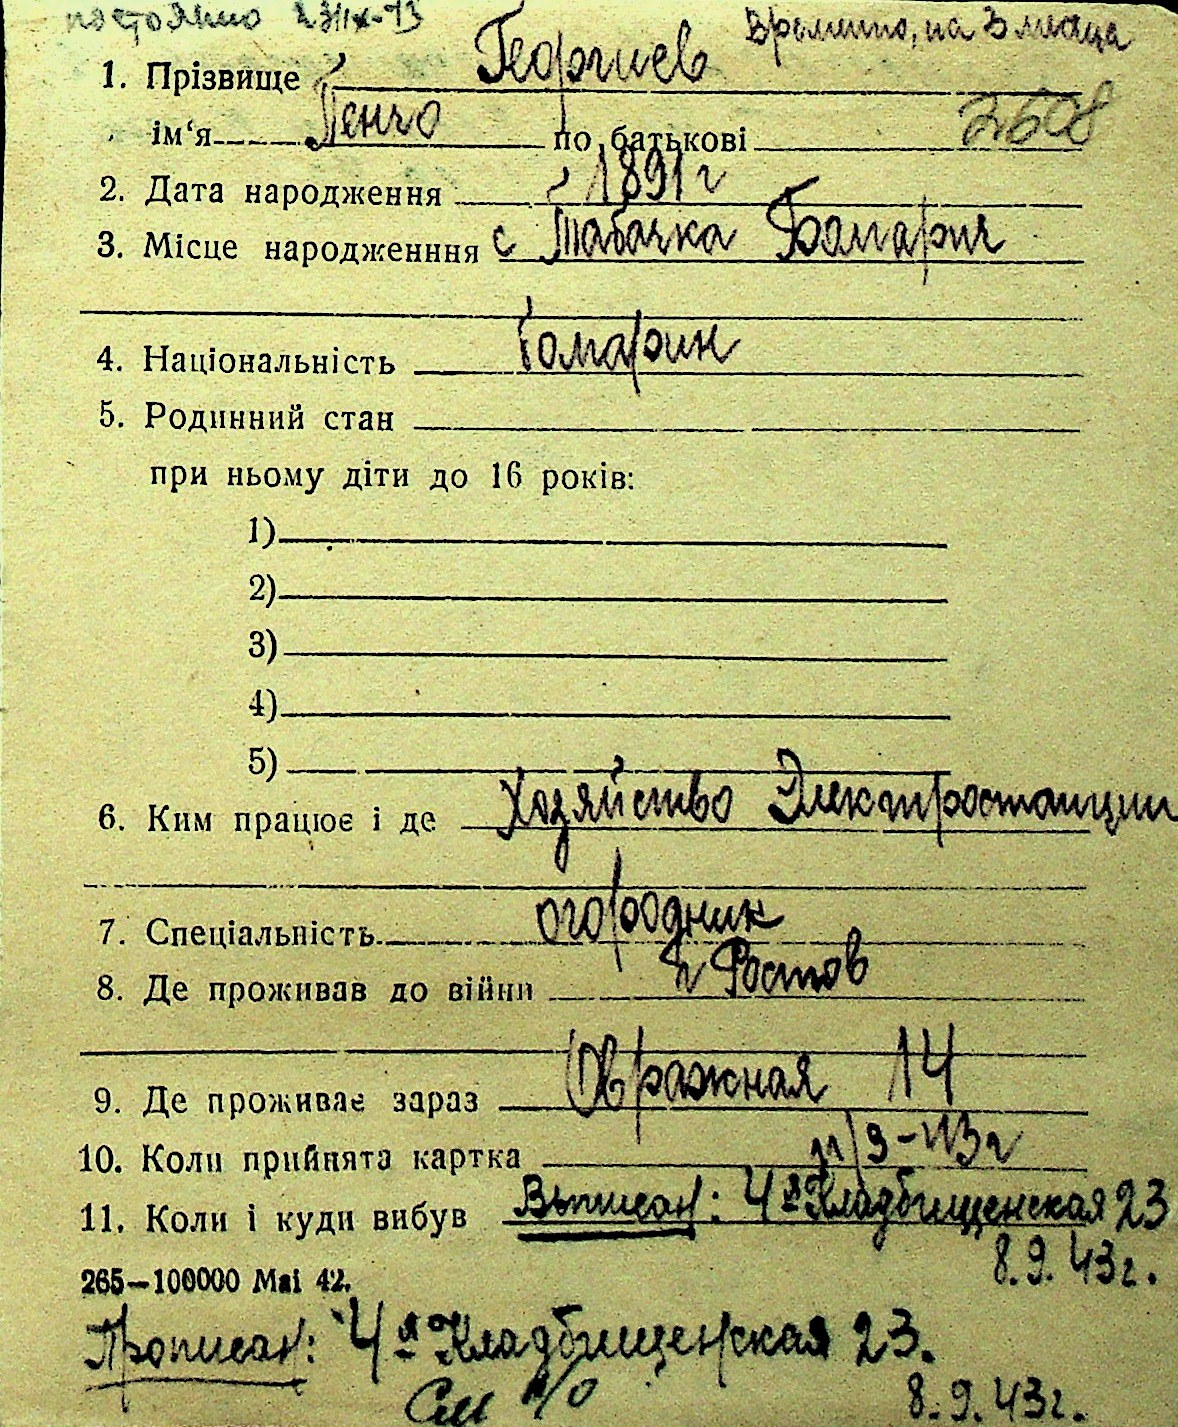 постоянно 23/IX-43
Временно, на 3 месяца
1. Прізвище Георгиев
2608
ім‘я Пенчо по батькові
2. Дата народження 1891 г
3. Місце народженння с Табачка Болгария
4. Національність болгарин
5. Родинний стан
при ньому діти до 16 років:
1)
2)
3)
4)
5)
6. Ким працює і де Хозяйство Электростанции
7. Спеціальність огородник
8. Де проживав до війни г Ростов
9. Де проживає зараз Овражная 14
10. Коли прийнята картка
11. Коли і куди вибув Выписан: 4ая Кладбищенская 23
8.9.43г.
265—100000 Mai 42.
Прописан: 4ая Кладбищенская 23.
См н/о
8.9.43г.